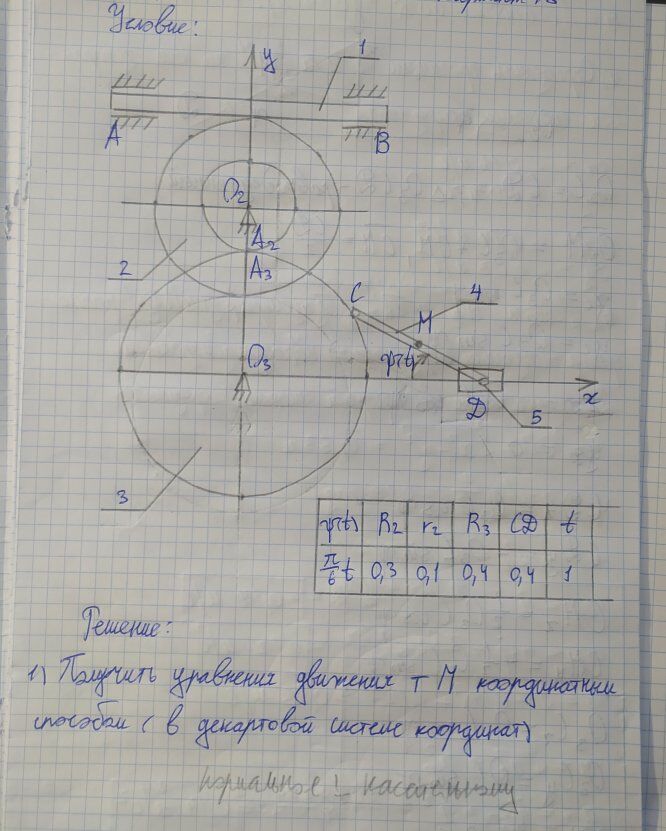 Условие:
y
1
A
B
O₂
A₂
2
A₃
C
4
M
ψ(t)
O₃
x
D
5
3
ψ(t) R₂ r₂ R₃ CD t
π/6 t 0,3 0,1 0,4 0,4 1
Решение:
1) Получить уравнения движения т М координатным
способом (в декартовой системе координат)
нормальное ⊥ касательному